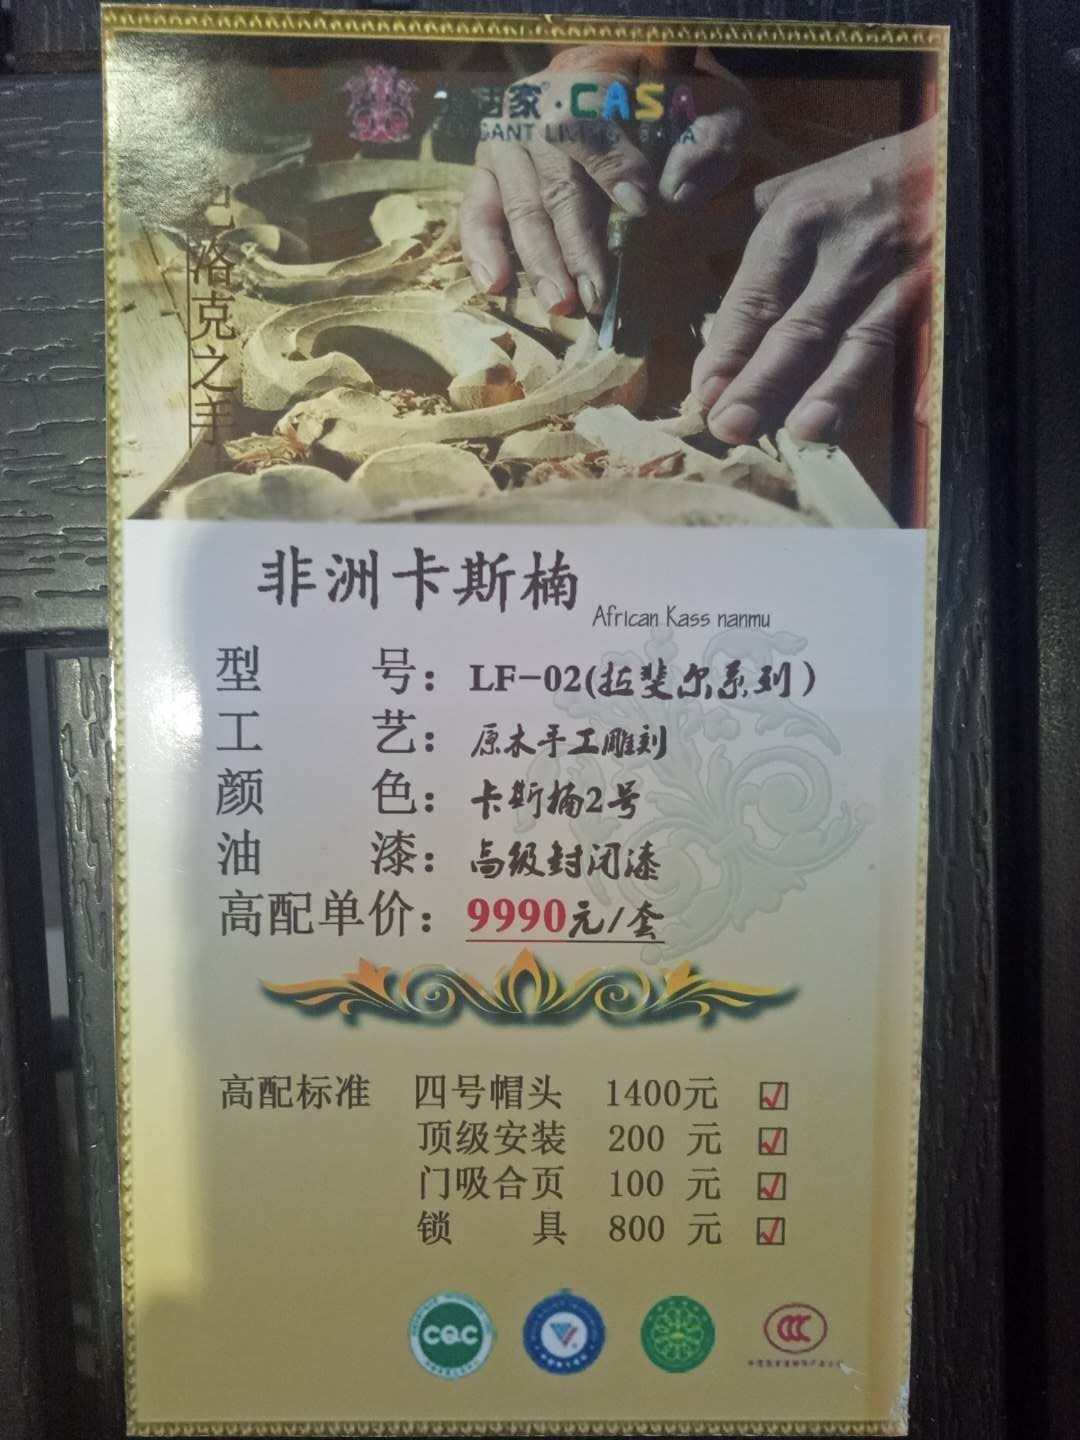 家·CASA
洛克之手
非洲卡斯楠
African Kass nanmu
型 号：LF-02(拉斐尔系列）
工 艺：原木手工雕刻
颜 色：卡斯楠2号
油 漆：高级封闭漆
高配单价：9990元/套
高配标准 四号帽头 1400元
顶级安装 200 元
门吸合页 100 元
锁 具 800 元
CQC